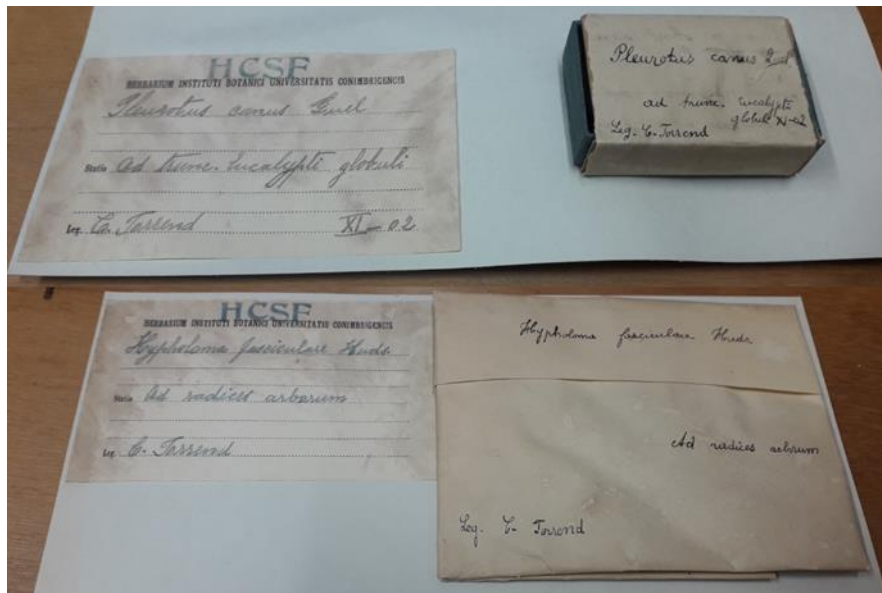 HCSF
HERBARIUM INSTITUTI BOTANICI UNIVERSITATIS CONIMBRIGENCIS
Pleurotus canus Quel
Statio Ad trunc. Eucalypti globuli
Leg. C. Torrend XI-02
Pleurotus canus
ad trunc. Eucalypti
globuli XI-02
Leg. C. Torrend
HCSF
HERBARIUM INSTITUTI BOTANICI UNIVERSITATIS CONIMBRIGENCIS
Hypholoma fasciculare Huds.
Statio Ad radices arborum
Leg. C. Torrend
Hypholoma fasciculare Huds
Ad radices arborum
Leg. C. Torrend